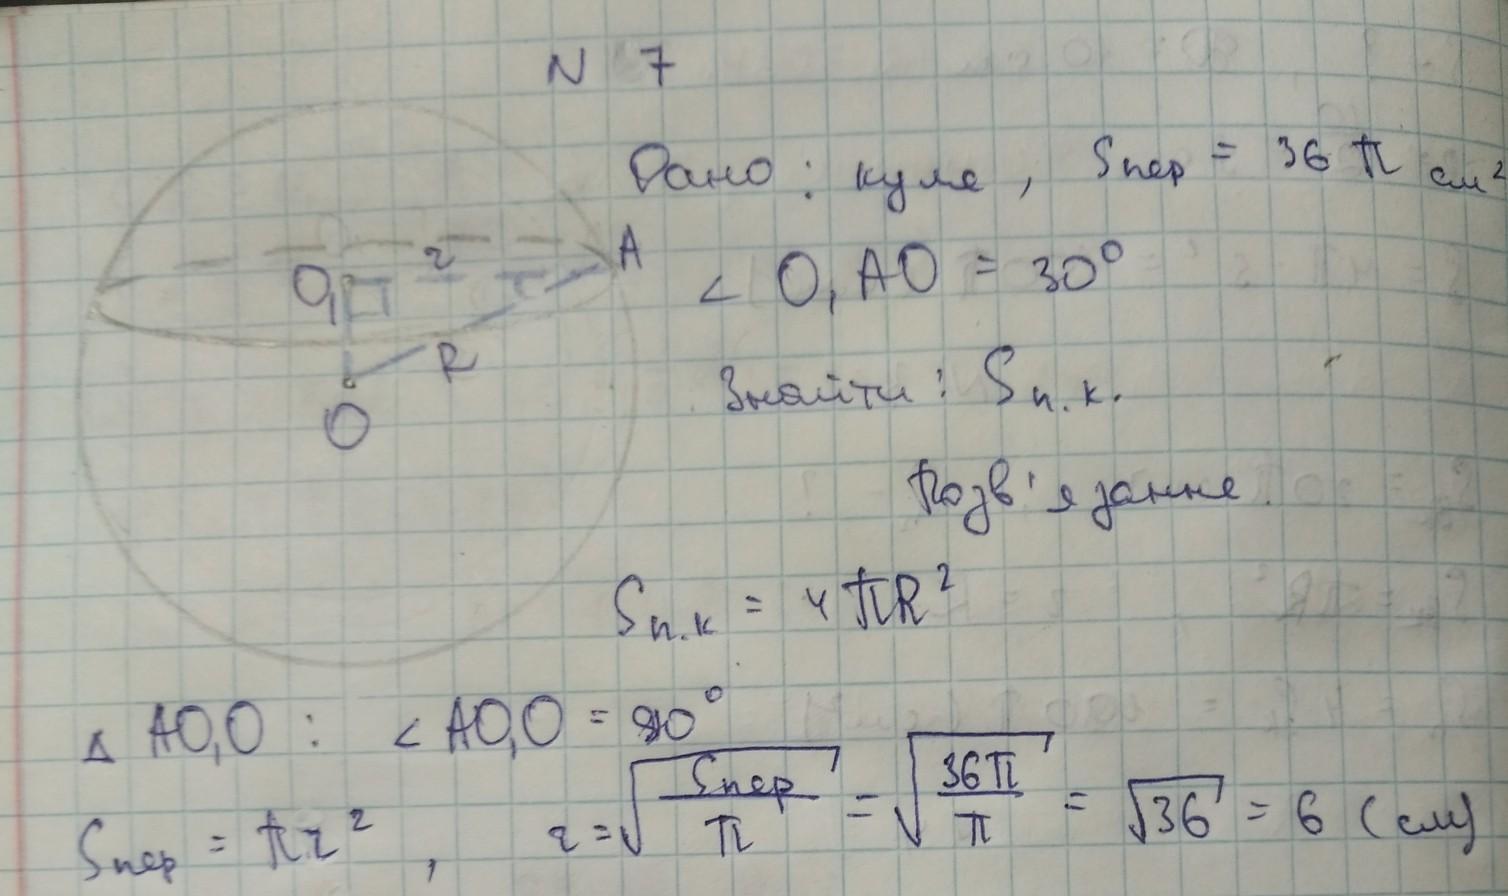 N 7
Дано: куля, Sпер = 36 π см²
∠ O₁AO = 30°
Знайти: Sп.к.
Розв'язання
Sп.к = 4πR²
Δ AO₁O : ∠ AO₁O = 90°
Sпер = πr², r = √(Sпер/π) = √(36π/π) = √36 = 6 (см)
O₁
r
A
R
O